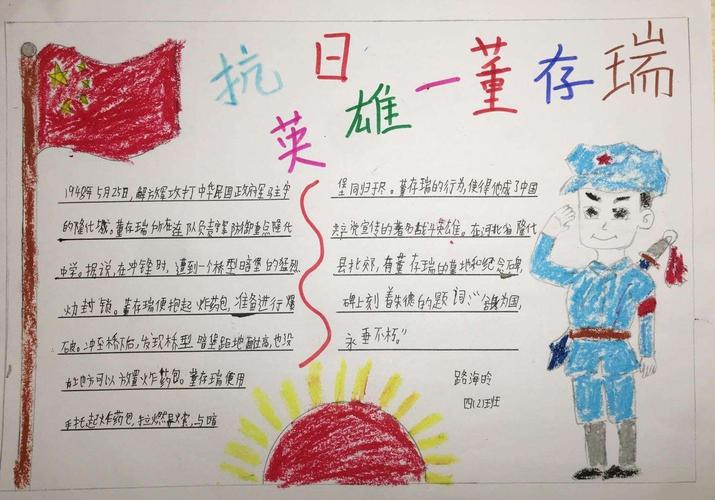 抗日
英雄一董存瑞
1948年5月25日,解放军攻打中华民国政府军主守
的隆化城。董存瑞所在连队负责军防御重点隆化
中学。据说,在冲锋时,遭到一个桥型暗堡的猛烈
火力封锁。董存瑞便抱起炸药包,准备进行爆
破。冲至桥下后,发现桥型暗堡距地面过高,也没
有地方可以放置炸药包。董存瑞使用
手托起炸药包,拉燃导火索,与暗
堡同归于尽。董存瑞的行为,使得他成了中国
共产党宣传的著名战斗英雄。在河北省隆化
县北郊,有董存瑞的墓地和纪念碑,
碑上刻着朱德的题词:"舍身为国,
永垂不朽。"
路海昤
四(2)班